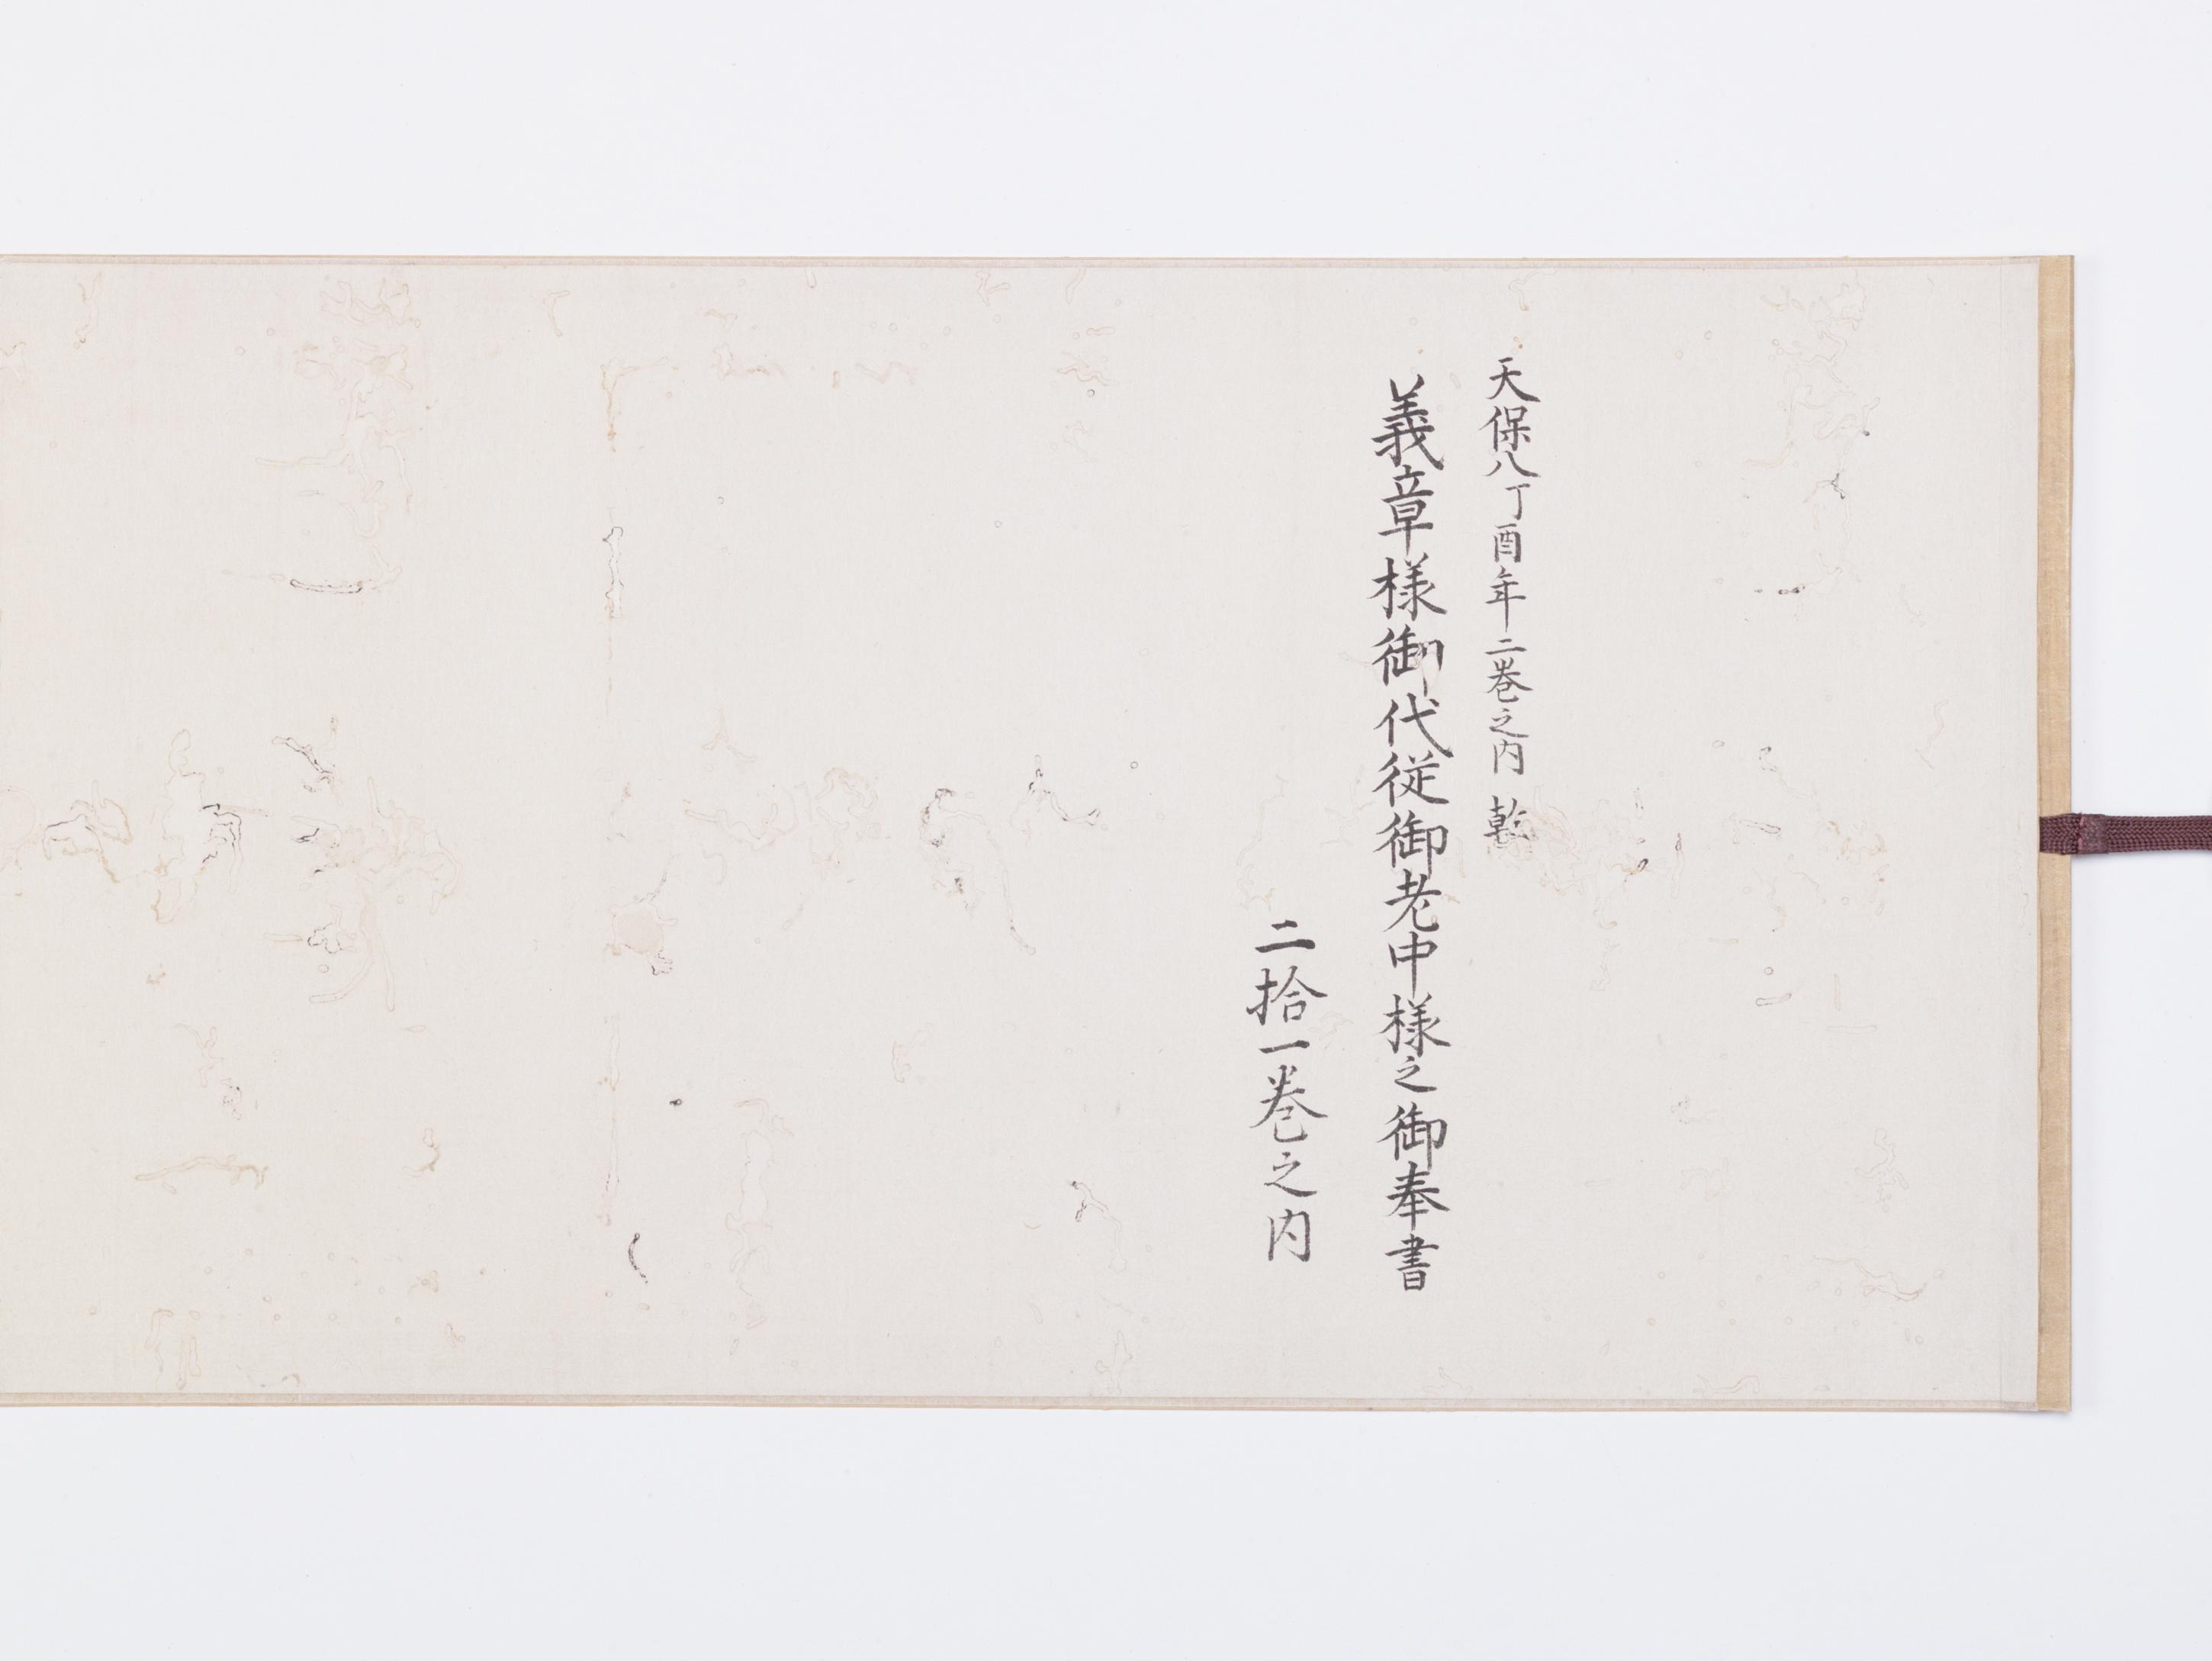 天保八丁酉年二巻之内 乾
義章様御代従御老中様之御奉書
二拾一巻之内